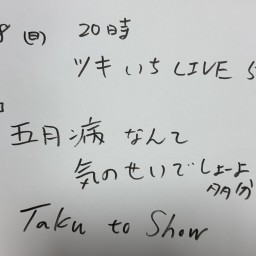 8 (日) 20時
ツキいちLIVE
五月病なんて
気のせいでしょーよ
多分
Taku to Show